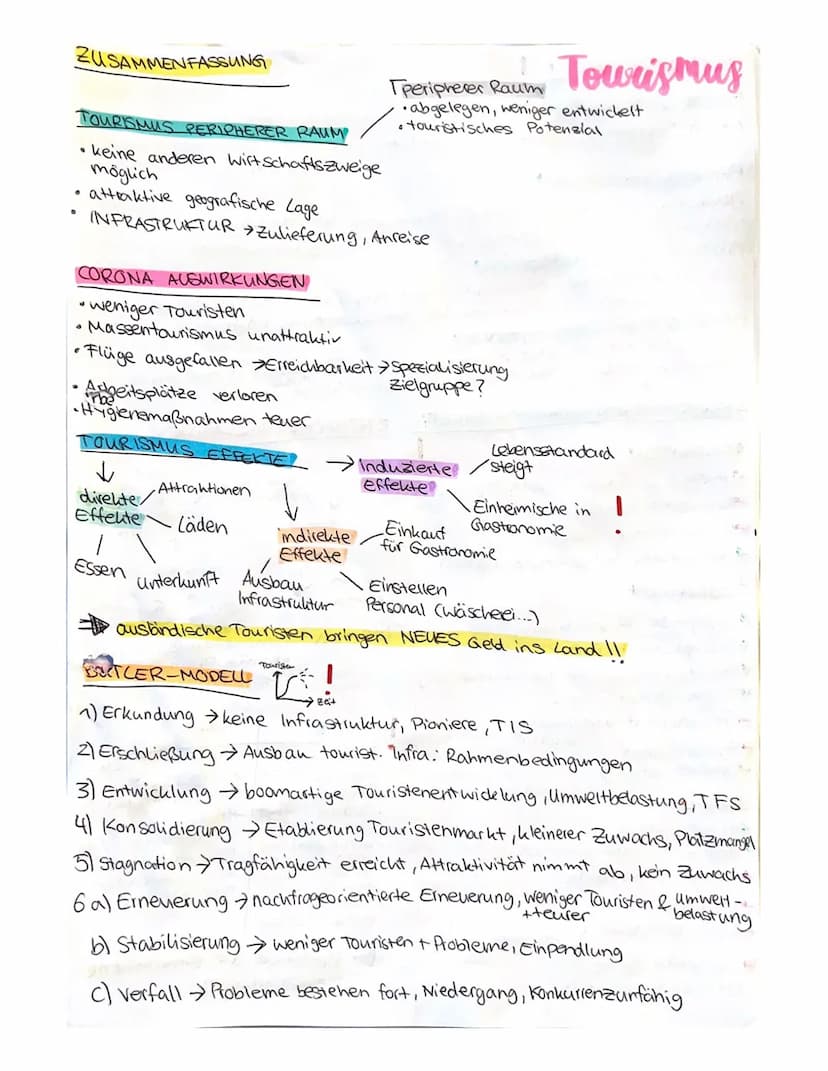 ZUSAMMENFASSUNG
Tourismus
peripherer Raum
• abgelegen, weniger entwickelt
• touristisches Potenzial
TOURISMUS PERIPHERER RAUM
• keine anderen Wirtschaftszweige
möglich
• attraktive geografische Lage
• INFRASTRUKTUR → Zulieferung, Anreise
CORONA AUSWIRKUNGEN
• weniger Touristen
• Massentourismus unattraktiv
• Flüge ausgefallen → Erreichbarkeit → Spezialisierung
Zielgruppe?
• Arbeitsplätze verloren
• Hygienemaßnahmen teuer
TOURISMUS EFFEKTE
→ Induzierte
Effekte
Lebensstandard
steigt
Einheimische in
Gastronomie !
↓
direkte
Effekte
Attraktionen
Läden
Essen
Unterkunft
↓
indirekte
Effekte
Einkauf
für Gastronomie
Ausbau
Infrastruktur
Einstellen
Personal (Wäscherei...)
⇒ ausländische Touristen bringen NEUES Geld ins Land!!
BUTLER-MODELL
Zeit
!
1) Erkundung → keine Infrastruktur, Pioniere, TIS
2) Erschließung → Ausbau tourist. Infra. Rahmenbedingungen
3) Entwicklung → boomartige Touristenentwicklung, Umweltbelastung, TFS
4) Konsolidierung → Etablierung Touristenmarkt, kleinerer Zuwachs, Platzmangel
5) Stagnation → Tragfähigkeit erreicht, Attraktivität nimmt ab, kein Zuwachs
6 a) Erneuerung → nachfrageorientierte Erneuerung, weniger Touristen & Umwelt-
++teurer
belastung
b) Stabilisierung → weniger Touristen + Probleme, Einpendlung
c) Verfall → Probleme bestehen fort, Niedergang, Konkurrenzunfähig